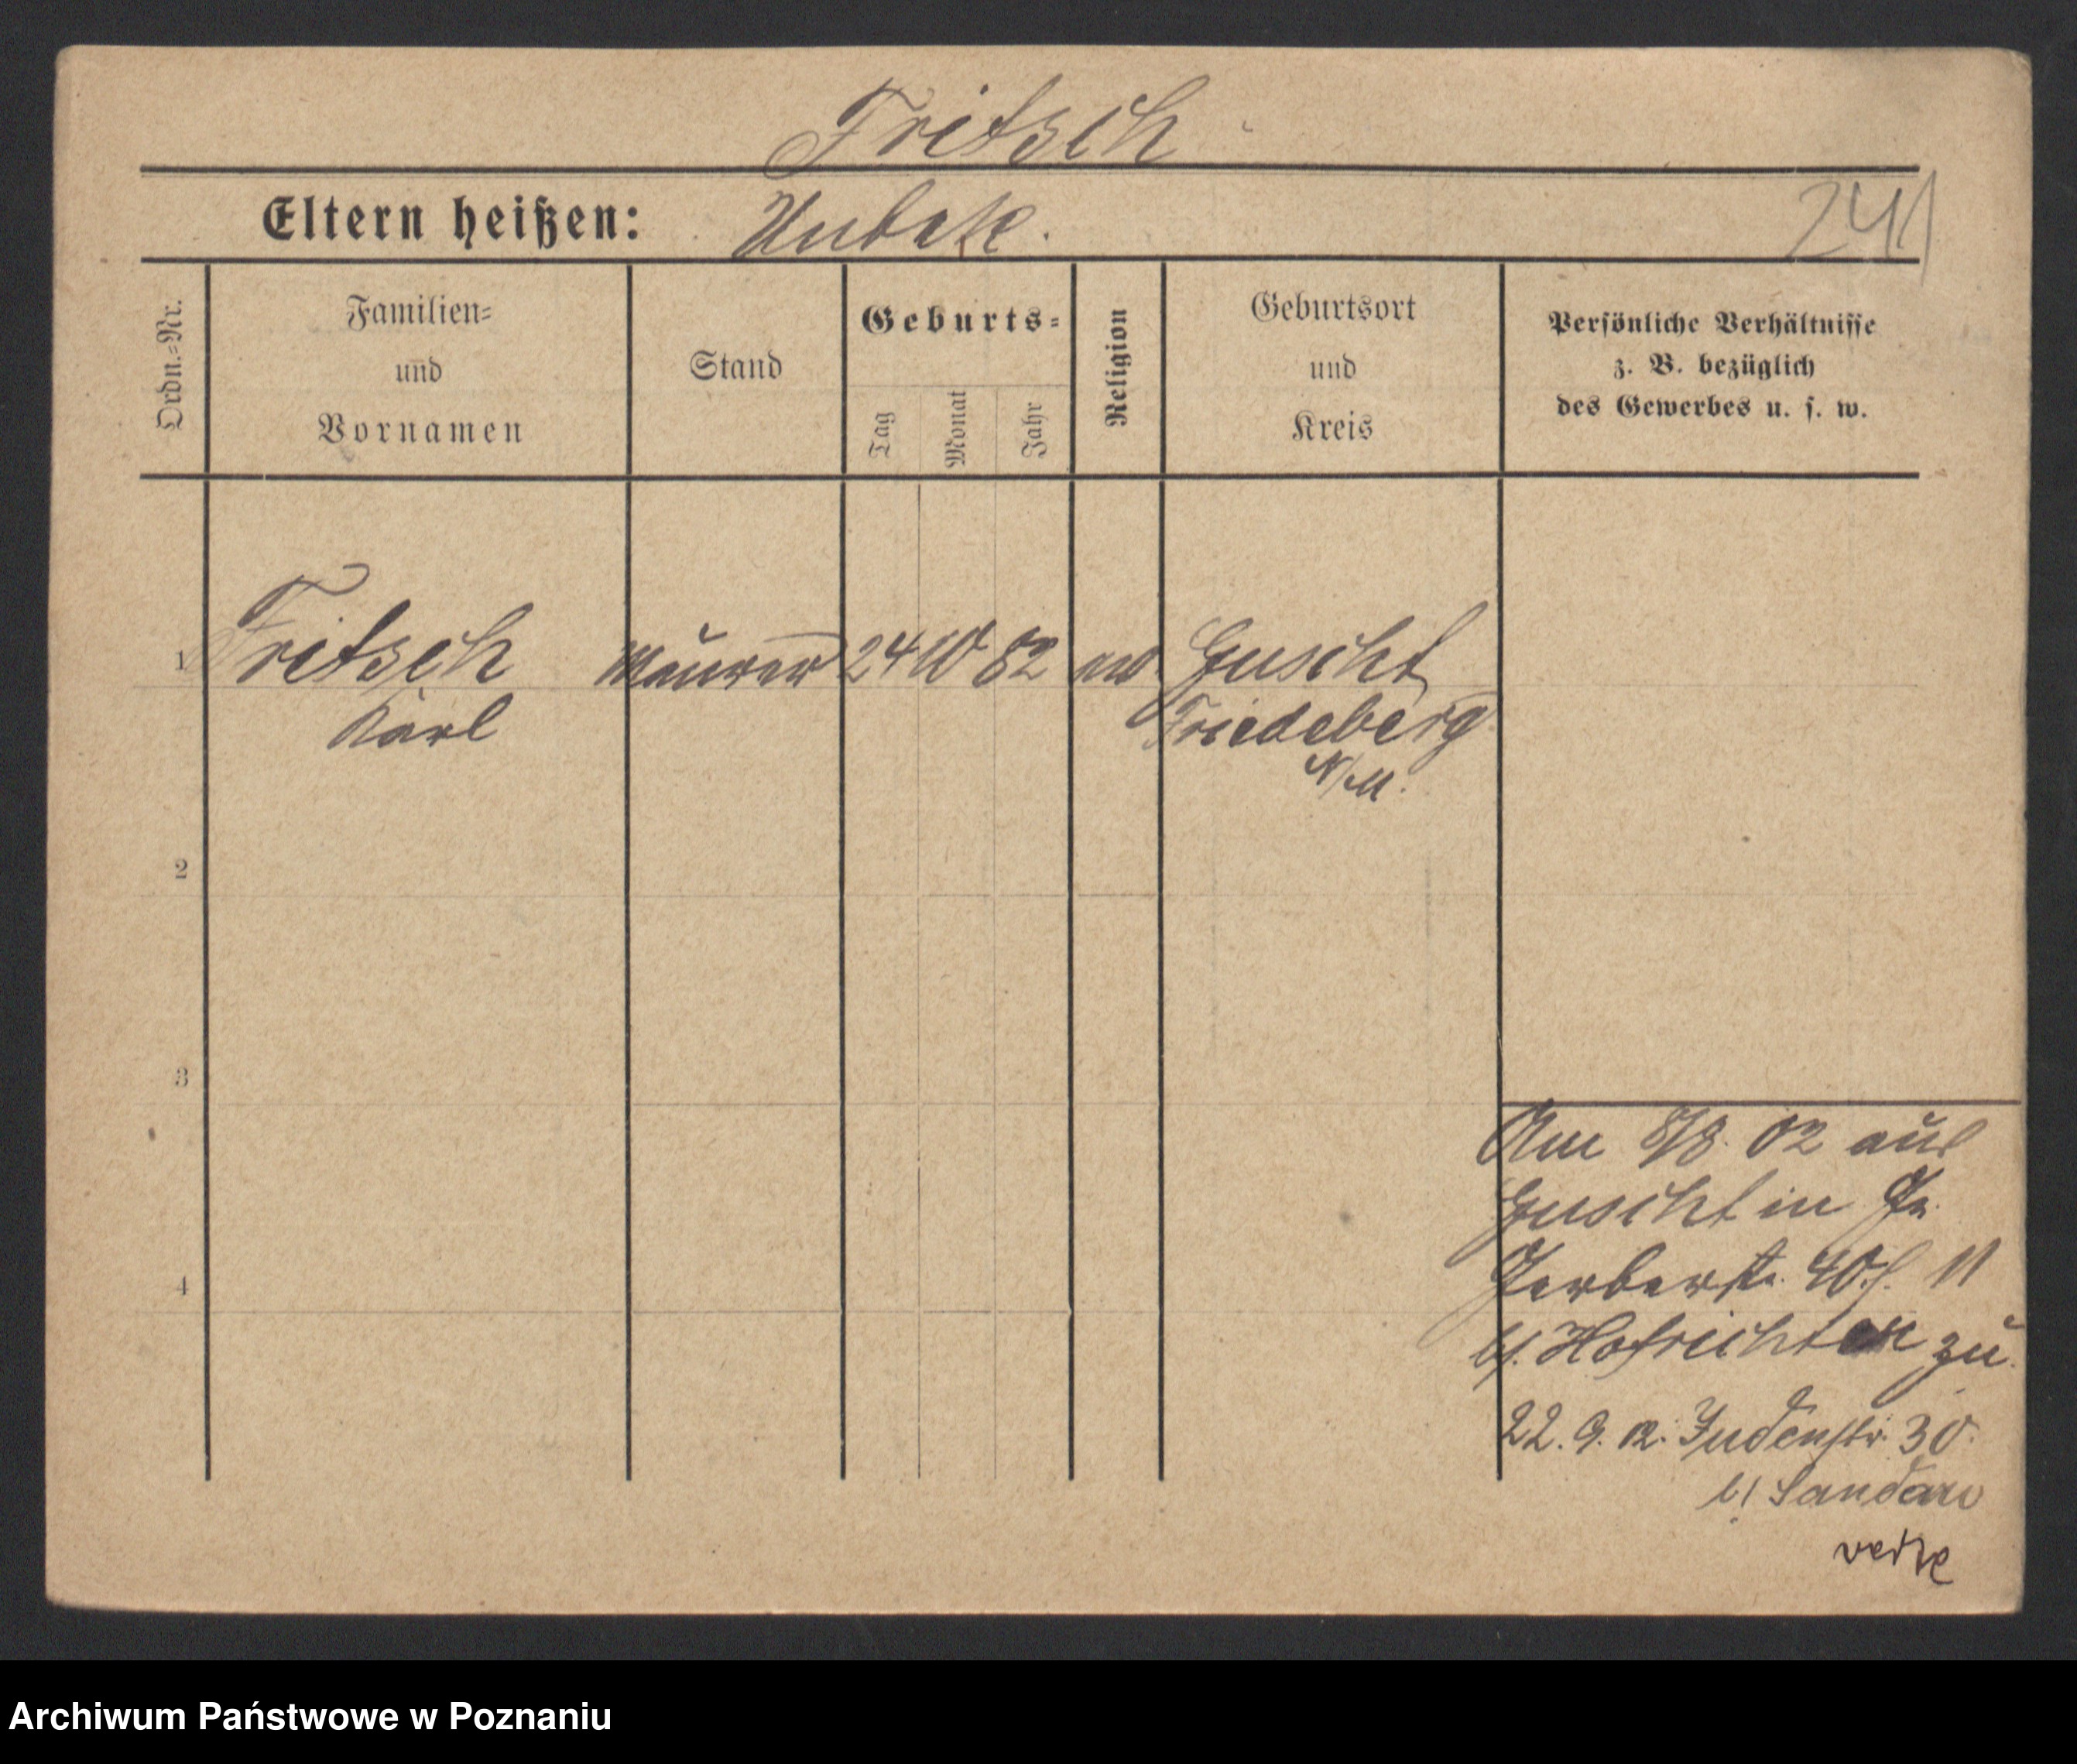 Fritsch
Eltern heißen: Unbek.
241
Ordn.=Nr.
Familien=
und
Vornamen
Stand
Geburts=
Tag
Monat
Jahr
Religion
Geburtsort
und
Kreis
Persönliche Verhältnisse
z. B. bezüglich
des Gewerbes u. s. w.
1 Fritsch Maurer 24 10 82 Guscht
Karl Friedeberg
N/M.
2
3
4
Am 8/8. 02 aus
Guscht in
Gerberstr. 40
b/. Hofrichter zu.
22. 9. 02. Judenstr. 30.
b/
Archiwum Państwowe w Poznaniu